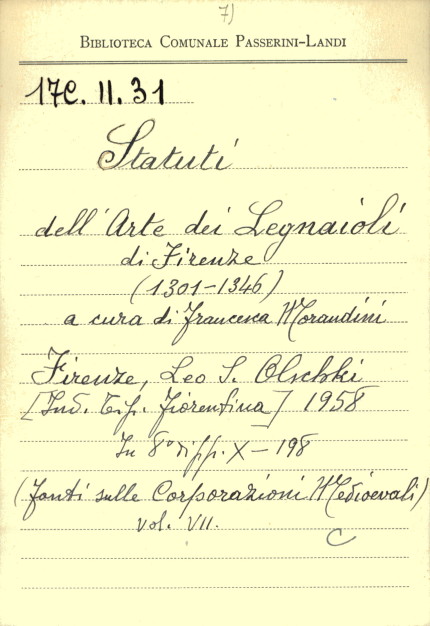 7)
BIBLIOTECA COMUNALE PASSERINI-LANDI
17C. II. 31
Statuti
dell'Arte dei Legnaioli
di Firenze
(1301-1346)
a cura di Francesca Morandini
Firenze, Leo S. Olschki
[Ind. Tip. Fiorentina] 1958
In 8° di pp. X - 198
(Fonti sulle Corporazioni Medioevali)
vol. VII.
C